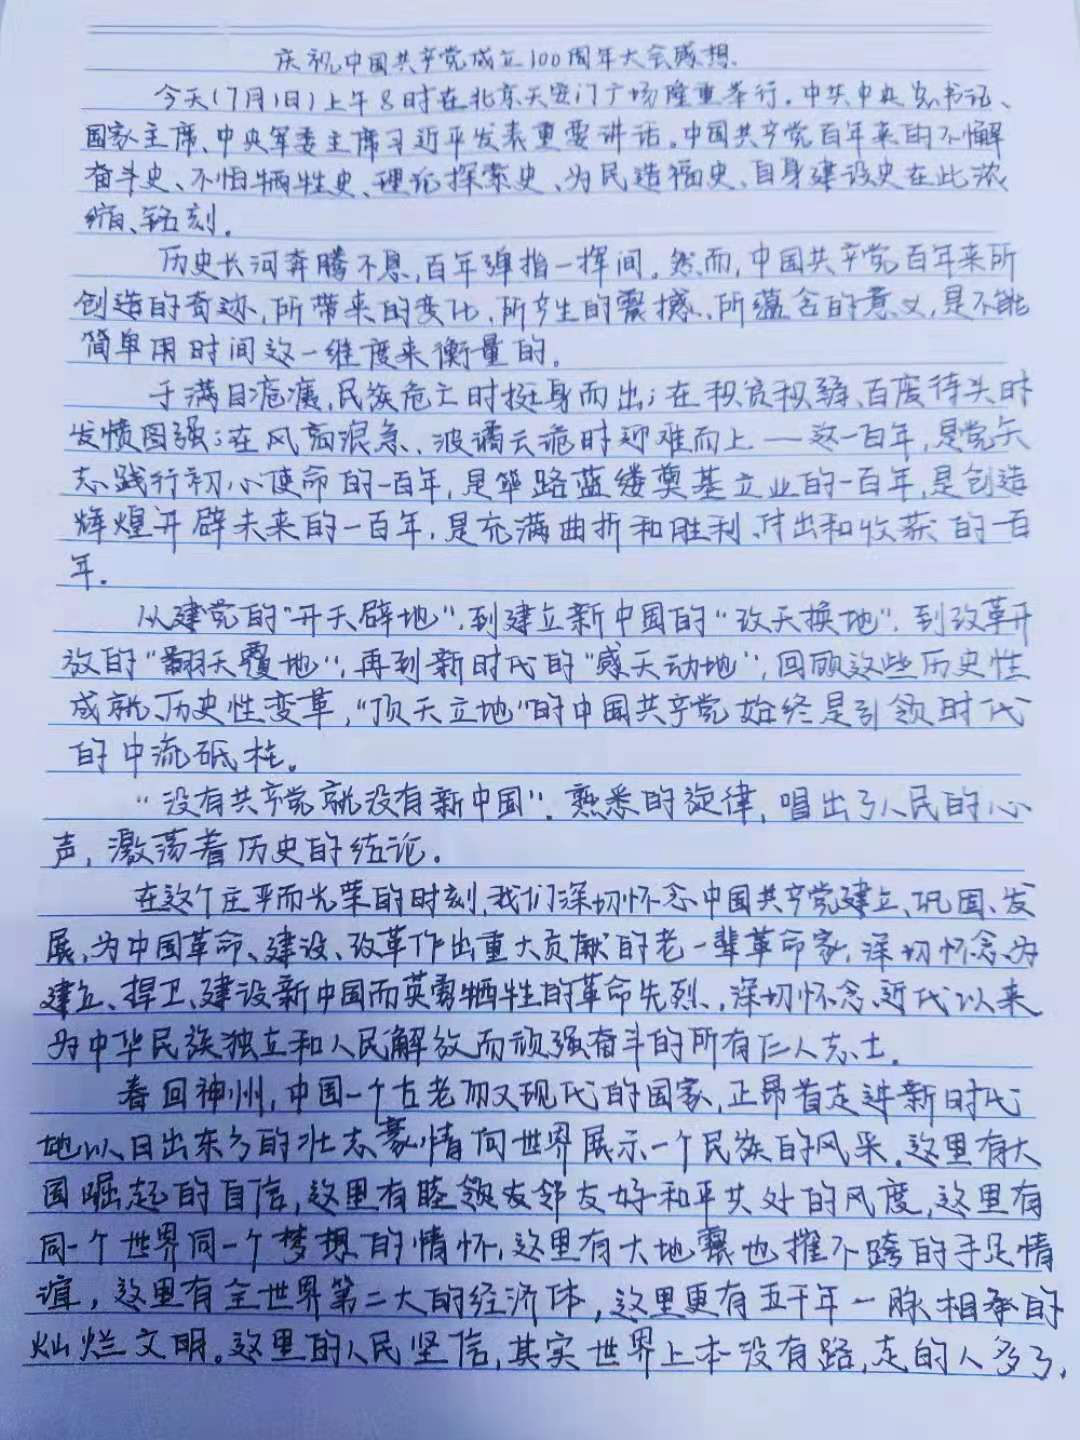 庆祝中国共产党成立100周年大会感想
今天(7月1日)上午8时在北京天安门广场隆重举行。中共中央总书记、
国家主席、中央军委主席习近平发表重要讲话。中国共产党百年来的不懈
奋斗史、不怕牺牲史、理论探索史、为民造福史、自身建设史在此浓
缩、铭刻。
历史长河奔腾不息,百年弹指一挥间。然而,中国共产党百年来所
创造的奇迹,所带来的变化,所产生的震撼、所蕴含的意义,是不能
简单用时间这一维度来衡量的。
于满目疮痍,民族危亡时挺身而出;在积贫积弱、百废待头时
发愤图强;在风高浪急、波谲云诡时迎难而上——这一百年,是党矢
志践行初心使命的一百年,是筚路蓝缕奠基立业的一百年,是创造
辉煌开辟未来的一百年,是充满曲折和胜利、付出和收获的一百
年。
从建党的“开天辟地”,到建立新中国的“改天换地”,到改革开
放的“翻天覆地”,再到新时代的“感天动地”,回顾这些历史性
成就、历史性变革,“顶天立地”的中国共产党始终是引领时代
的中流砥柱。
“没有共产党就没有新中国”。熟悉的旋律,唱出了人民的心
声,激荡着历史的结论。
在这个庄严而光荣的时刻,我们深切怀念中国共产党建立、巩固、发
展,为中国革命、建设、改革作出重大贡献的老一辈革命家,深切怀念为
建立、捍卫、建设新中国而英勇牺牲的革命先烈,深切怀念近代以来
为中华民族独立和人民解放而顽强奋斗的所有仁人志士。
春回神州,中国一个古老而又现代的国家,正昂首走进新时代
她以日出东方的壮志豪情向世界展示一个民族的风采。这里有大
国崛起的自信,这里有睦领友邻友好和平共处的风度,这里有
同一个世界同一个梦想的情怀,这里有大地震也摧不跨的手足情
谊,这里有全世界第二大的经济体,这里更有五千年一脉相承的
灿烂文明。这里的人民坚信,其实世界上本没有路,走的人多了,